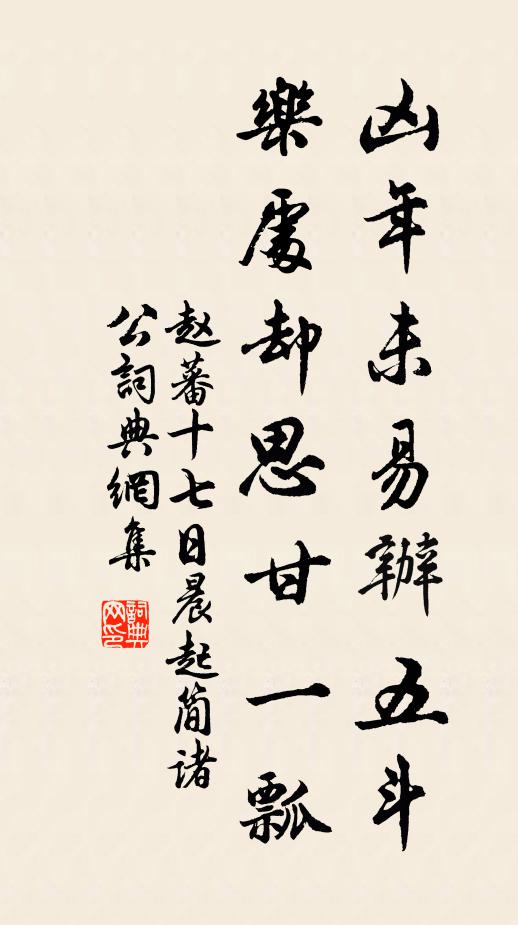 凶年未易辦五斗
樂處却思甘一瓢
赵蕃十七日晨起简诸
公詞典網集
詞典
网印